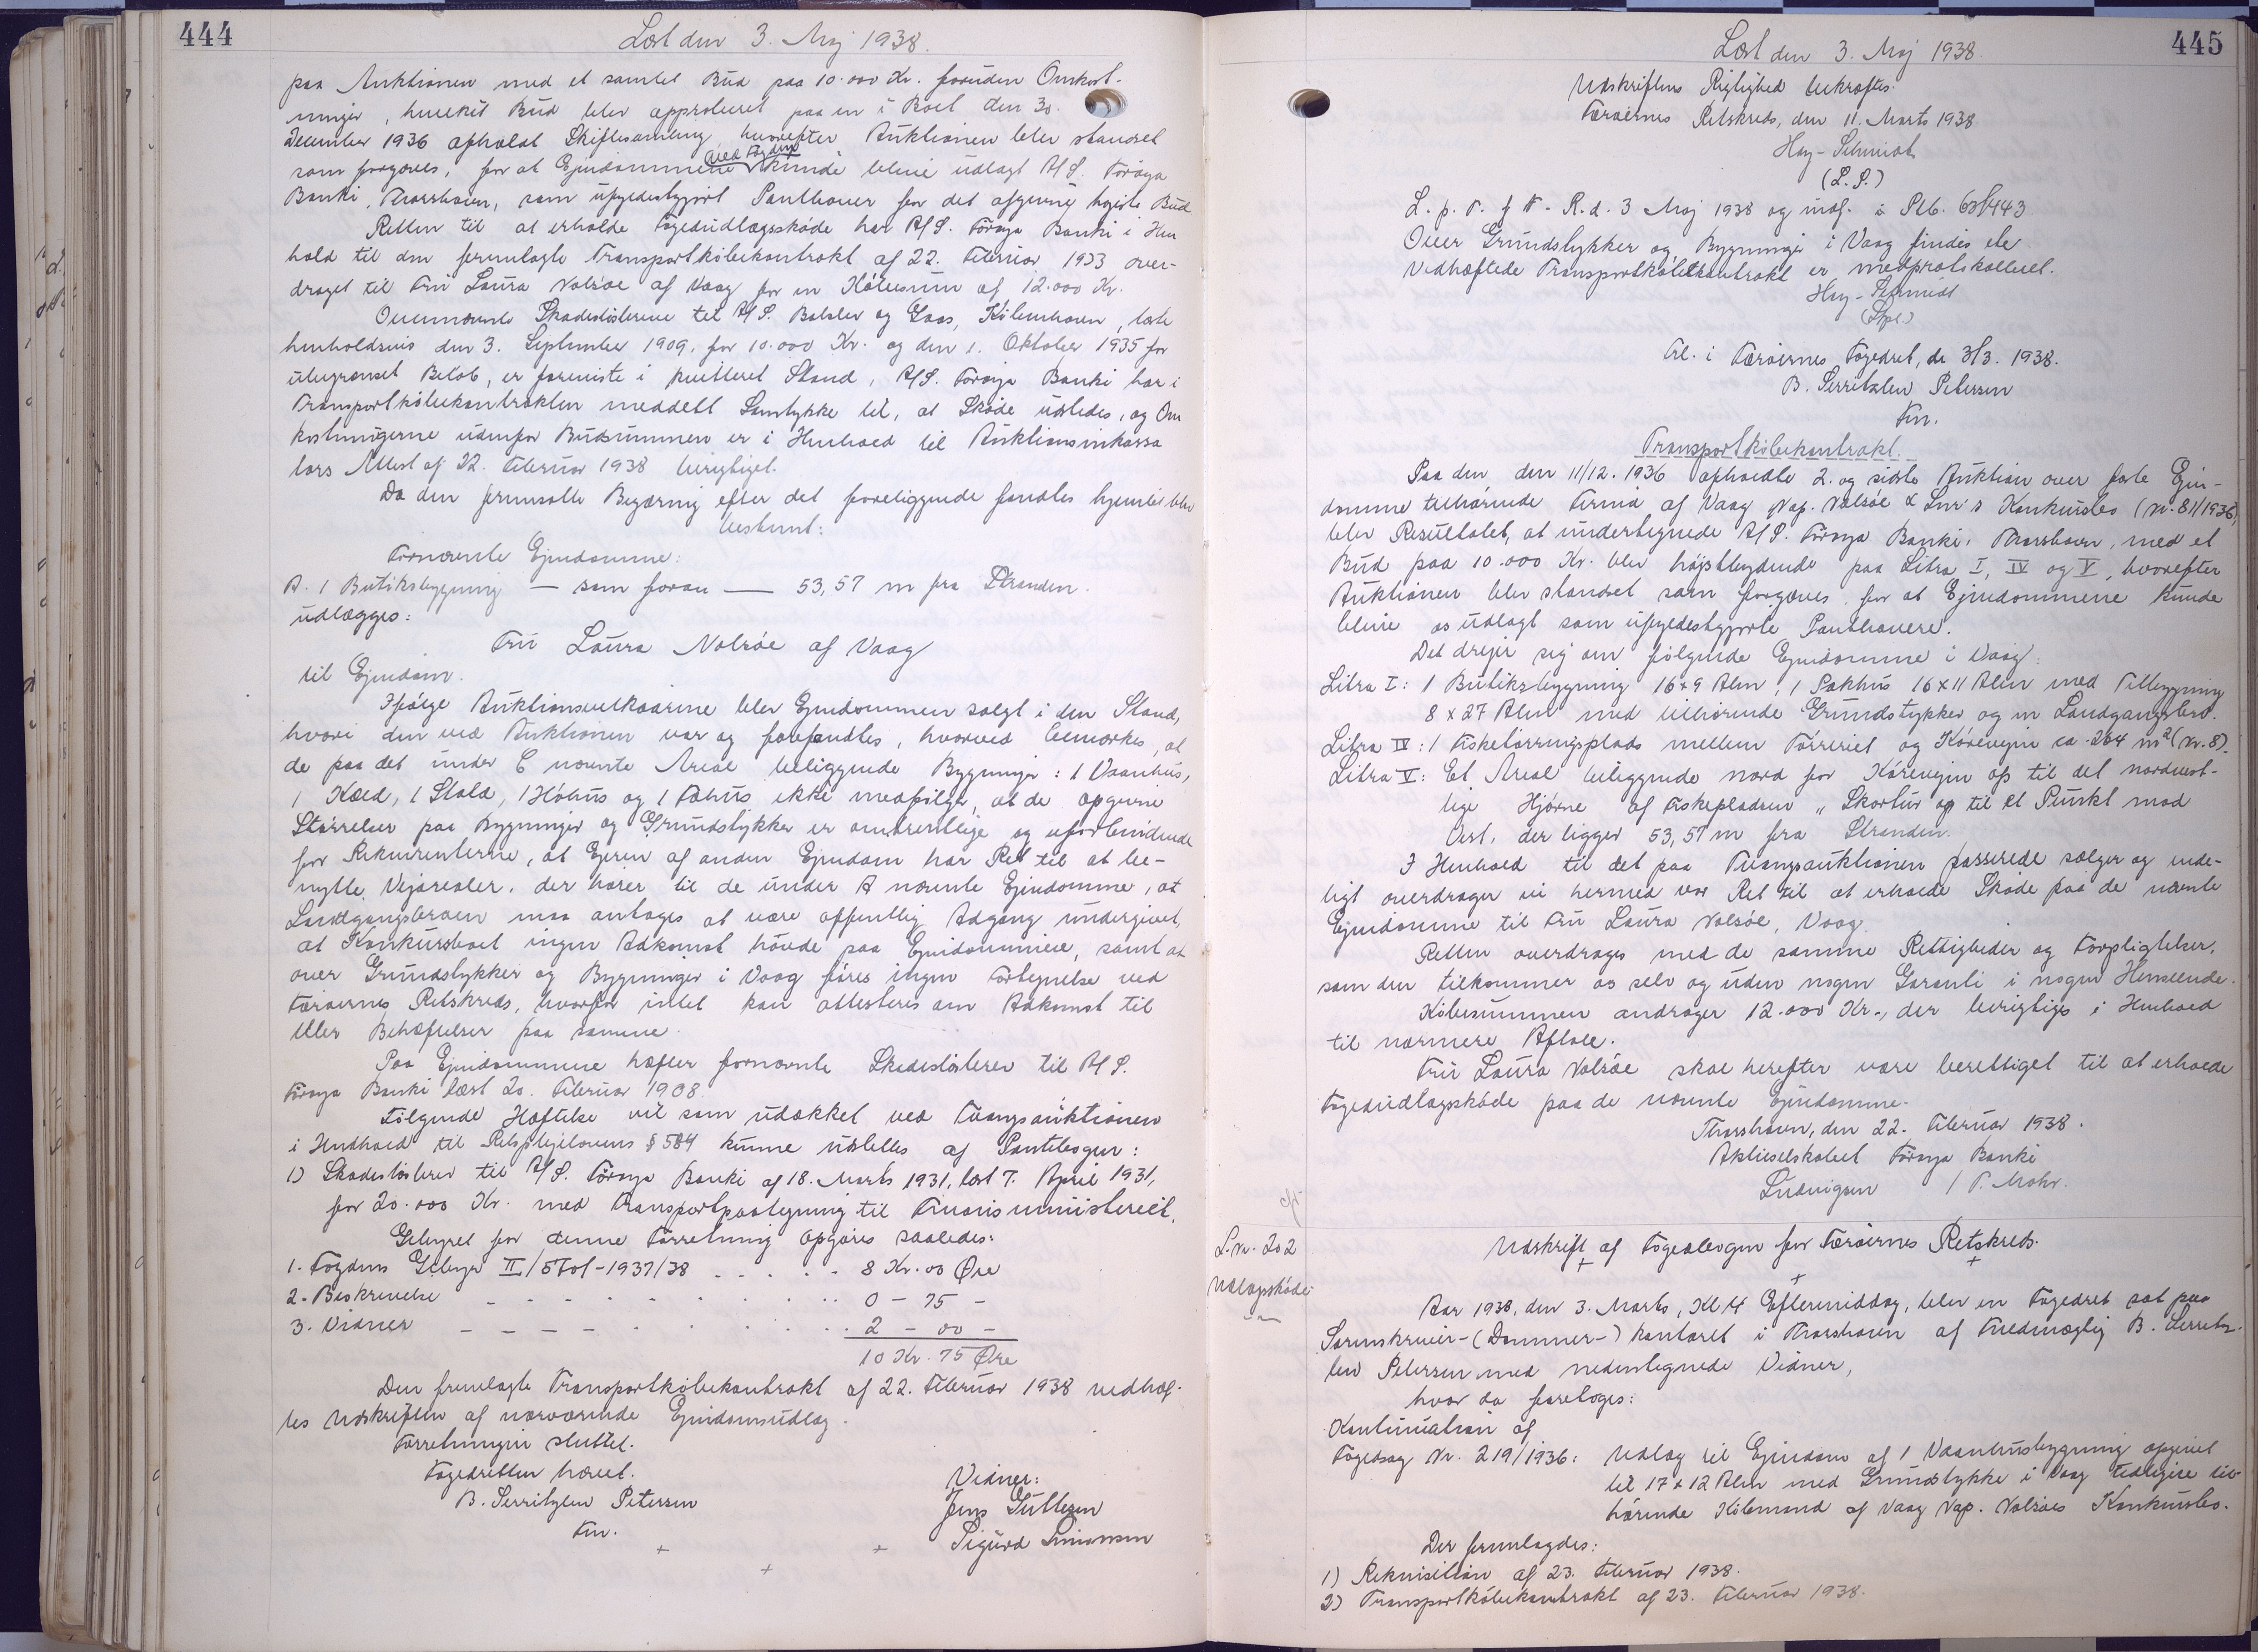 444
Læst den 3. Maj 1938.
paa Auktionen med et samlet Bud paa 10.000 Kr. foruden Omkost-
ninger, hvilket Bud blev approberet paa en i Boet den 30.
December 1936 afholdt Skiftesamling hvorefter Auktionen blev standset
som forgæves, for at Ejendommene ved Fogden kunde blive udlagt A/S. Föroya
Banki, Thorshavn, som ufyldestgjort Panthaver for det afgivne højeste Bud
Retten til at erholde Fogedudlægsskøde har A/S. Föroya Banki i Hen
hold til den fremlagte Transportkøbekontrakt af 22. Februar 1933 over-
draget til Fru Laura Nolsöe af Vaag for en Købesum af 12.000 Kr.
Ovennævnte Skadesløsbreve til A/S. Balslev og Gaas, København, læst
henholdsvis den 3. September 1909, for 10.000 Kr. og den 1. Oktober 1935 for
ubegrænset Beløb, er foreviste i kvitteret Stand, A/S. Föroya Banki har i
Transportkøbekontrakten meddelt Samtykke til, at Skøde udstedes, og Om
kostningerne udenfor Budsummen er i Henhold til Auktionsinkassa
tors Attest af 22. Februar 1938 berigtiget.
Da den fremsatte Begæring efter det foreliggende fandtes hjemlet blev
bestemt:
Fornævnte Ejendomme:
A. 1 Butiksbygning — som foran — 53,57 m fra Stranden.
udlægges:
Fru Laura Nolsöe af Vaag
til Ejendom.
Ifølge Auktionsvilkaarene blev Ejendommen solgt i den Stand,
hvori den ved Auktionen var og forefandtes, hvorved bemærkes, at
de paa det under C nævnte Areal beliggende Bygninger: 1 Vaanhus,
1 Kæld, 1 Stald, 1 Høhus og 1 Fæhus ikke medfølger, at de opgivne
Størrelser paa Bygninger og Grundstykker er omtrentlige og uforbindende
for Rekvirenterne, at Ejeren af anden Ejendom har Ret til at be-
nytte Vejarealer, der hører til de under A nævnte Ejendomme, at
Landgangsbroen maa antages at være offentlig Adgang undergivet,
at Konkursboet ingen Adkomst havde paa Ejendommene, samt at
over Grundstykker og Bygninger i Vaag føres ingen Fortegnelse ved
Færøernes Retskreds, hvorfor intet kan attesteres om Adkomst til
eller Behæftelser paa samme.
Paa Ejendommene hæfter fornævnte Skadesløsbrev til A/S.
Föroya Banki læst 20. Februar 1908.
Følgende Hæftelse vil som udækket ved Tvangsauktionen
i Henhold til Retsplejelovens § 584 kunne udslettes af Pantebogen:
1) Skadesløsbrev til A/S. Föroya Banki af 18. Marts 1931, læst 7. April 1931,
for 20.000 Kr. med Transportpaategning til Finansministeriet.
Gebyret for denne Forretning opgøres saaledes:
1. Fogdens Gebyr II/5701-1937/38 . . . . . 8 Kr. 00 Øre
2. Beskrivelse - - - - - - . . . 0 - 75 -
3. Vidner - - - - - - . . . 2 - 00 -
10 Kr. 75 Øre
Den fremlagte Transportkøbekontrakt af 22. Februar 1938 vedhæf-
tes Udskriften af nærværende Ejendomsudlæg.
Forretningen sluttet.
Fogedretten hævet.
B. Serritzlew Petersen
Fm.
Vidner:
Jens Guttesen
Sigurd Simonsen
445
Læst den 3. Maj 1938.
Udskriftens Rigtighed bekræftes.
Færøernes Retskreds, den 11. Marts 1938
Høy-Schmidt
(L. S.)
L. p. T. f F. R. d. 3 Maj 1938 og indf. i Ptb. 63/443
Over Grundstykker og Bygninger i Vaag findes ele
Vedhæftede Transportkøbekontrakt er medprotokolleret.
Høy-Schmidt
(Stpl.)
Frl. i Færøernes Fogedret, d. 3/3. 1938.
B. Serritzlew Petersen
Fm.
Transportkøbekontrakt.
Paa den den 11/12. 1936 afholdte 2. og sidste Auktion over faste Ejen-
domme tilhørende Firma af Vaag Nap. Nolsöe & Søn's Konkursbo (Nr. 811/1936)
blev Resultatet, at undertegnede A/S. Föroya Banki, Thorshavn, med et
Bud paa 10.000 Kr. blev højstbydende paa Litra I, IV og V, hvorefter
Auktionen blev standset som forgæves, for at Ejendommene kunde
blive os udlagt som ufyldestgjorte Panthavere.
Det drejer sig om følgende Ejendomme i Vaag:
Litra I: 1 Butiksbygning 16 x 9 Alen, 1 Pakhus 16 x 11 Alen med Tilbygning
8 x 27 Alen med tilhørende Grundstykker og en Landgangsbro.
Litra IV: 1 Fisketørringsplads mellem Tørreriet og Kørevejen ca. 264 m² (Nr. 8).
Litra V: Et Areal beliggende nord for Kørevejen op til det nordvest-
lige Hjørne af Fiskepladsen „ Skortur og til et Punkt mod
Vest, der ligger 53,57 m fra Stranden.
I Henhold til det paa Tvangsauktionen passerede sælger og ende-
ligt overdrager vi hermed vor Ret til at erholde Skøde paa de nævnte
Ejendomme til Fru Laura Nolsöe, Vaag.
Retten overdrages med de samme Rettigheder og Forpligtelser,
som den tilkommer os selv og uden nogen Garanti i nogen Henseende.
Købesummen andrager 12.000 Kr., der berigtiges i Henhold
til nærmere Aftale.
Fru Laura Nolsöe skal herefter være berettiget til at erholde
Fogedudlægsskøde paa de nævnte Ejendomme.
Thorshavn, den 22. Februar 1938.
Aktieselskabet Föroya Banki
Ludvigsen / P. Mohr.
L. nr. 202
Udlægsskøde
Udskrift af Fogedbogen for Færøernes Retskreds.
Aar 1938, den 3. Marts, Kl. 4 Eftermiddag, blev en Fogedret sat paa
Sorenskriver-(Dommer-) kontoret i Thorshavn af Fuldmægtig B. Serritz-
lew Petersen med nedentegnede Vidner,
hvor da foretoges:
Kontinuation af
Fogedsag Nr. 219/1936: Udlæg til Ejendom af 1 Vaanhusbygning opgivet
til 17 x 12 Alen med Grundstykke i Vaag tidligere til-
hørende Købmand af Vaag Nap. Nolsöes Konkursbo.
Der fremlagdes:
1) Rekvisition af 23. Februar 1938.
2) Transportkøbekontrakt af 23. Februar 1938.